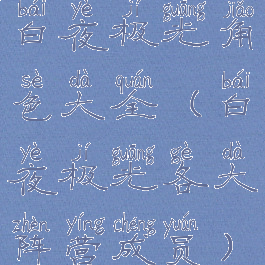 bái yè jí guāng jiǎo
白夜极光角
sè dà quán bái
色大全(白
yè jí guāng gè dà
夜极光各大
zhèn yíng chéng yuán
阵营成员)